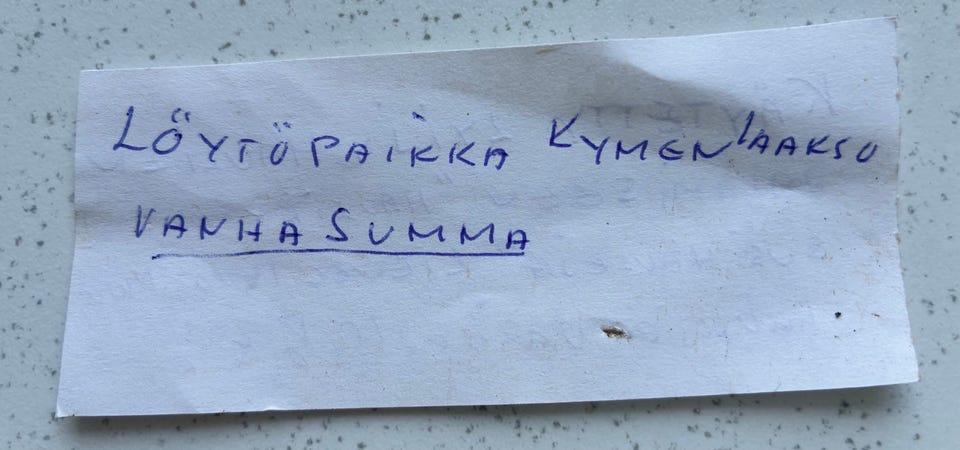 LÖYTÖPAIKKA KYMENLAAKSO
VANHA SUMMA